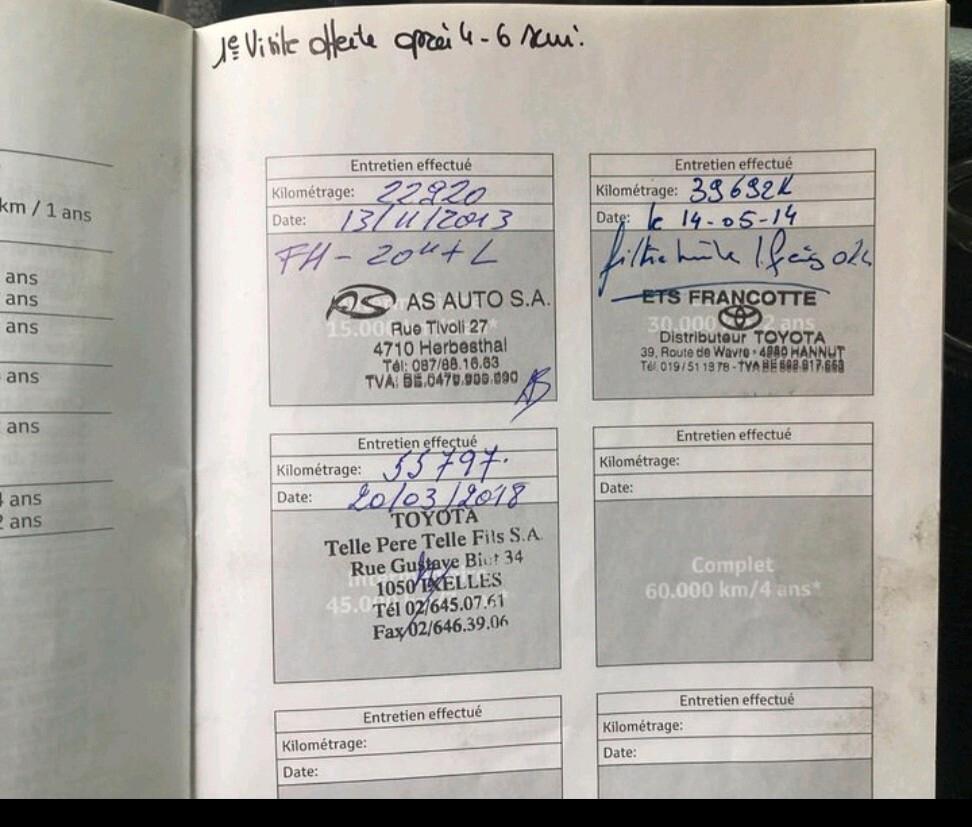 1e Visite offerte après 4-6
km / 1 ans
ans
ans
ans
ans
ans
ans
ans
Entretien effectué
Kilométrage: 22920
Date: 13/11/2013
FH - 20 + L
AS AUTO S.A.
15.00
Rue Tivoli 27
4710 Herbesthal
Tél: 087/88.16.63
TVA: BE.0470.909.090
Entretien effectué
Kilométrage: 39692K
Date: le 14-05-14
filtre huile
ETS FRANCOTTE
30.000 2 ans
Distributeur TOYOTA
39, Route de Wavre - 4280 HANNUT
Tél. 019/51 19 78 - TVA BE
Entretien effectué
Kilométrage: 55797.
Date: 20/03/2018
TOYOTA
Telle Pere Telle Fils S.A.
Rue Gustave Biot 34
1050 IXELLES
45.0
Tél 02/645.07.61
Fax 02/646.39.06
Entretien effectué
Kilométrage:
Date:
Complet
60.000 km/4 ans*
Entretien effectué
Kilométrage:
Date:
Entretien effectué
Kilométrage:
Date: